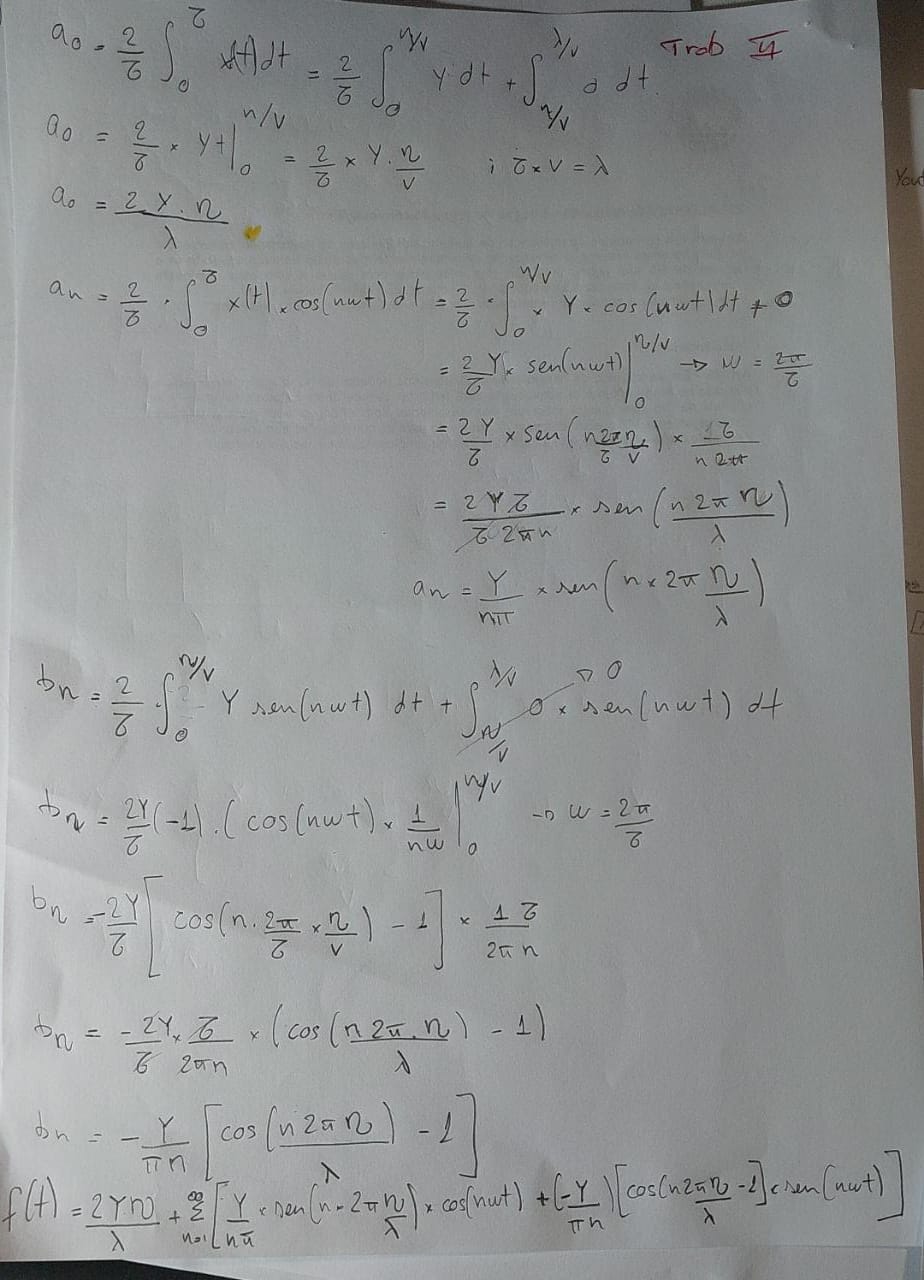 Trob II
a₀ = 2/τ ∫₀^τ x(t)dt = 2/τ ∫₀^(η/v) Y dt + ∫_(η/v)^(λ/v) 0 dt.
a₀ = 2/τ × Yt|₀^(η/v) = 2/τ × Y · η/v ; τ × v = λ
a₀ = 2 Y · η / λ
aₙ = 2/τ · ∫₀^τ x(t) × cos(nωt) dt = 2/τ · ∫₀^(η/v) × Y × cos(nωt) dt + 0
= 2/τ Y × sen(nωt)|₀^(η/v) → ω = 2π/τ
= 2Y/τ × sen(n 2π/τ η/v) × 1τ/(n 2π)
= 2Yτ/(τ 2πn) × sen(n 2π η/λ)
aₙ = Y/(nπ) × sen(n × 2π η/λ)
bₙ = 2/τ ∫₀^(η/v) Y sen(nωt) dt + ∫_(η/v)^(λ/v) 0 × sen(nωt) dt → 0
bₙ = 2Y/τ (-1) · (cos(nωt) × 1/(nω)|₀^(η/v) → ω = 2π/τ
bₙ = -2Y/τ [cos(n · 2π/τ × η/v) - 1] × 1τ/(2πn)
bₙ = -2Y/τ × τ/(2πn) × (cos(n 2π · η/λ) - 1)
bₙ = -Y/(πn) [cos(n 2π η/λ) - 1]
f(t) = 2Yη/λ + Σ_(n=1)^∞ [Y/(nπ) × sen(n · 2π η/λ) × cos(nωt) + (-Y/(πn)) [cos(n 2π η/λ - 1] × sen(nωt)]